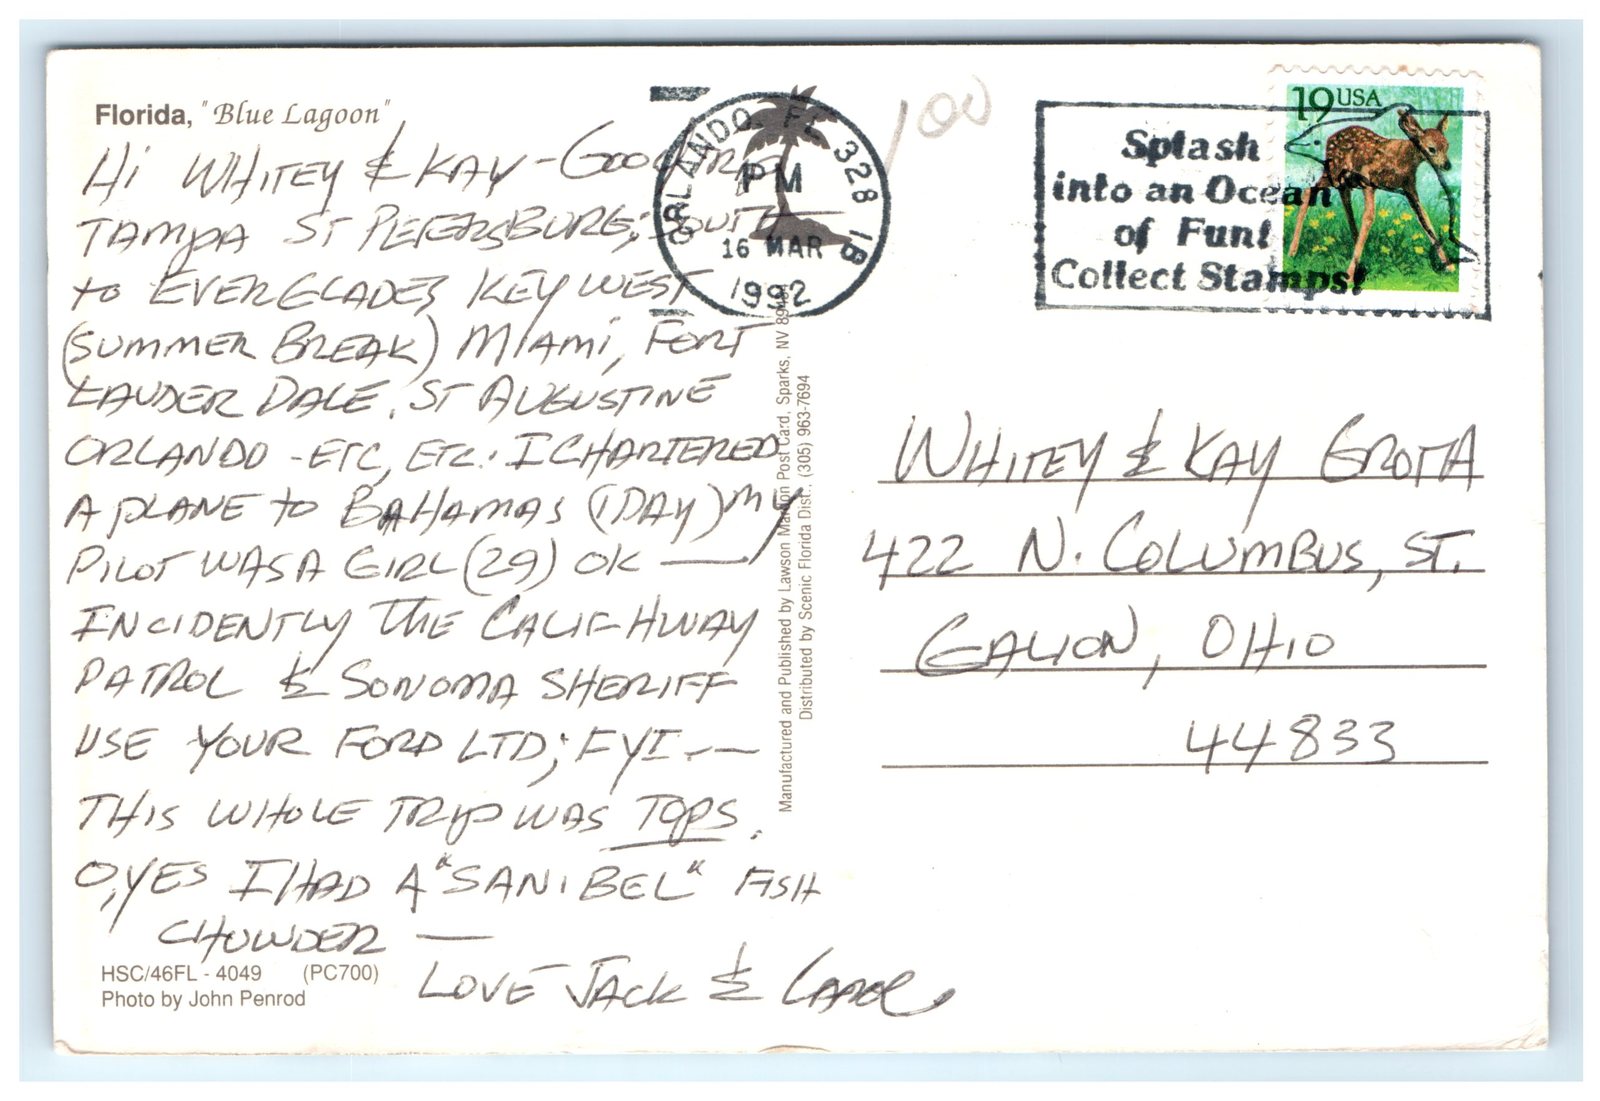 Florida, "Blue Lagoon"
HI WHITEY & KAY - GOOD TRIP
TAMPA ST PETERSBURG, SOUTH
to EVERGLADES KEY WEST
(SUMMER BREAK) MIAMI, FORT
LAUDER DALE, ST AUGUSTINE
ORLANDO - ETC, ETC. I CHARTERED
A PLANE to BAHAMAS (1 DAY) MY
PILOT WAS A GIRL (29) OK —
INCIDENTLY THE CALIF HWAY
PATROL & SONOMA SHERIFF
USE YOUR FORD LTD; FYI. —
THIS WHOLE TRIP WAS TOPS.
O, YES I HAD A "SANIBEL" FISH
CHOWDER —
LOVE JACK & CAROL
HSC/46FL - 4049 (PC700)
Photo by John Penrod
Manufactured and Published by Lawson Mardon Post Card, Sparks, NV
Distributed by Scenic Florida Dist., (305) 963-7694
ORLANDO FL 328
PM
16 MAR
1992
1B
100
Splash
into an Ocean
of Fun!
Collect Stamps!
19 USA
WHITEY & KAY GROTH
422 N. COLUMBUS, ST.
GALION, OHIO
44833